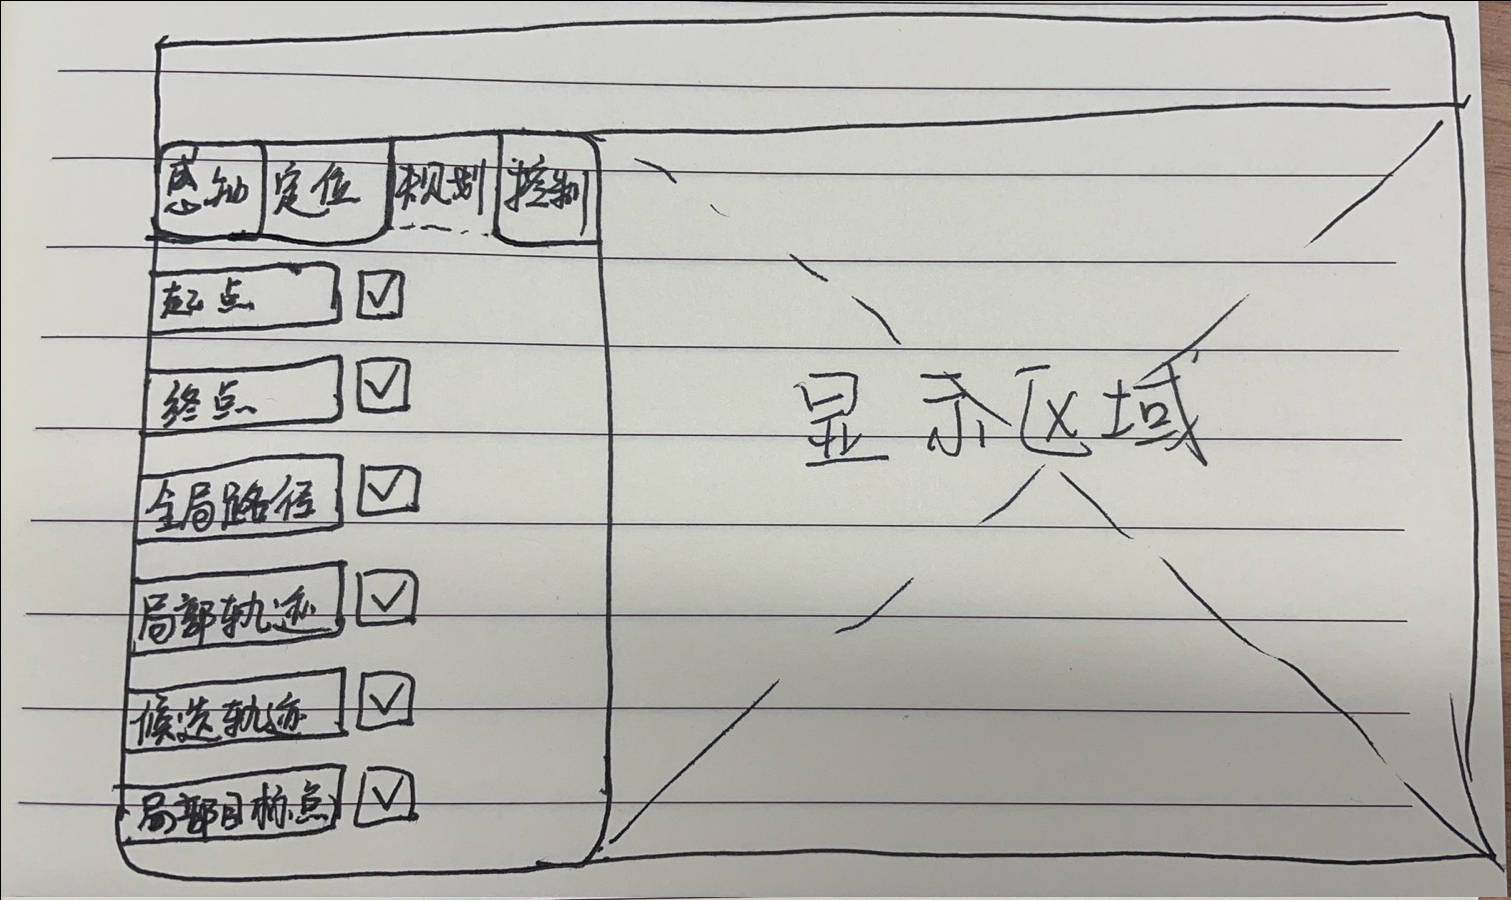 感知 定位 规划 控制
起点
终点
全局路径
局部轨迹
候选轨迹
局部目标点
显示区域